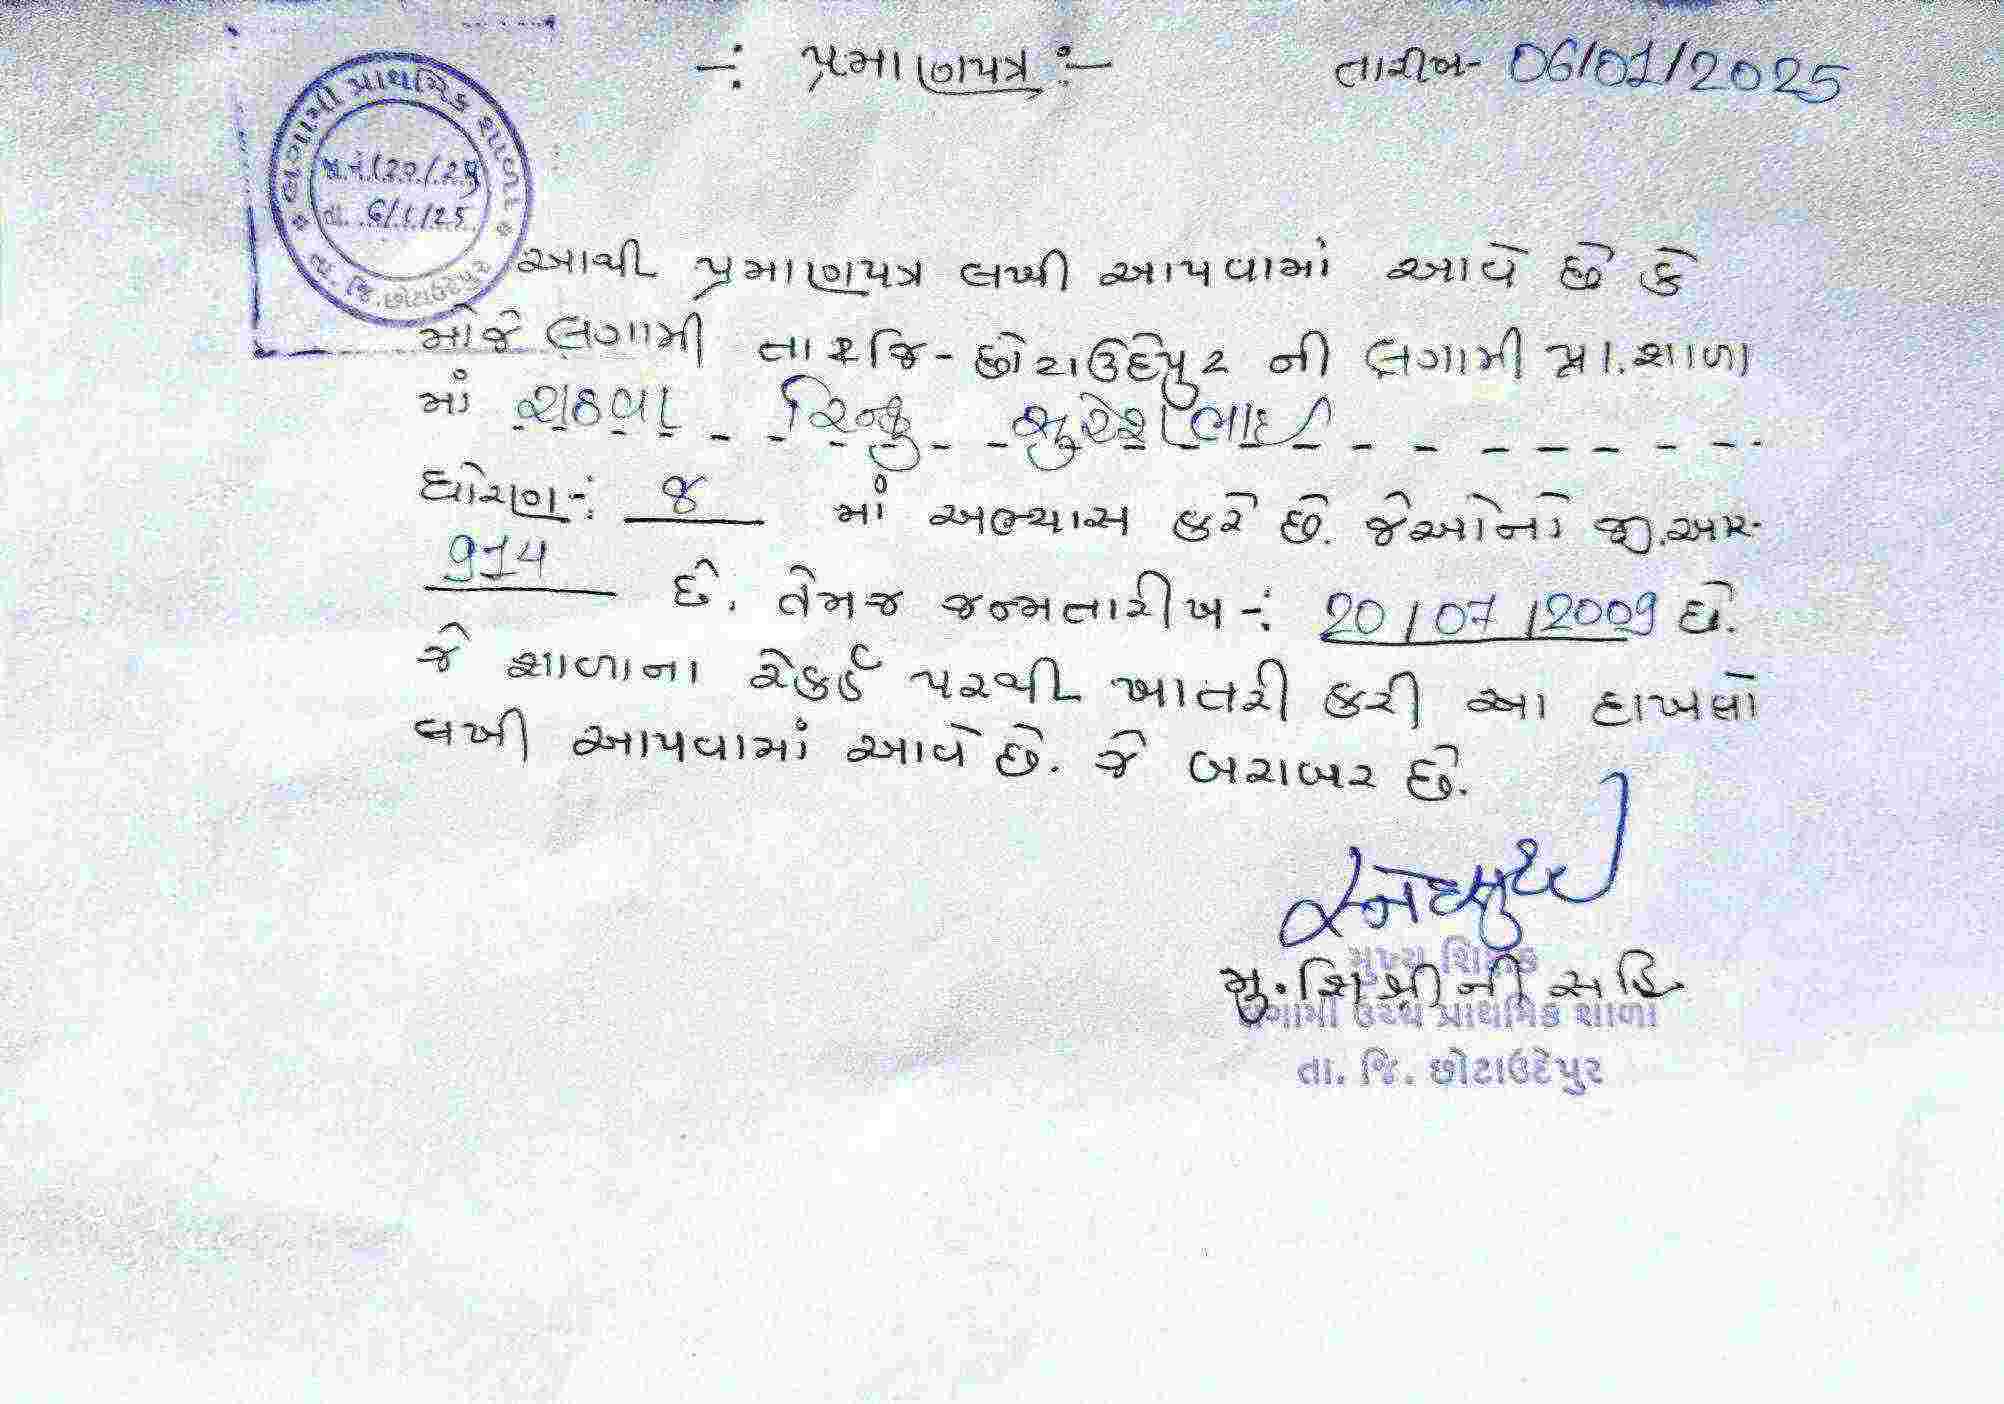 -: પ્રમાણપત્ર :-
તારીખ- 06/01/2025
લગામી પ્રાથમિક શાળા
જા.નં.122/25
તા. 6/1/25
તા. જિ. છોટાઉદેપુર
આથી પ્રમાણપત્ર લખી આપવામાં આવે છે કે
મોજે લગામી તા.જિ-છોટાઉદેપુર ની લગામી પ્રા.શાળા
માં રાઠવા રિન્કુ સુરેશભાઈ
ધોરણ-: ૪ માં અભ્યાસ કરે છે. જેઓનો જી.આર-
914 છે. તેમજ જન્મતારીખ-: 20/07/2009 છે.
જે શાળાના રેકર્ડ પરથી ખાતરી કરી આ દાખલો
લખી આપવામાં આવે છે. જે બરાબર છે.
મુખ્ય શિક્ષક
મુ.શિશ્રીની સહિ
લગામી ઉચ્ચ પ્રાથમિક શાળા
તા. જિ. છોટાઉદેપુર